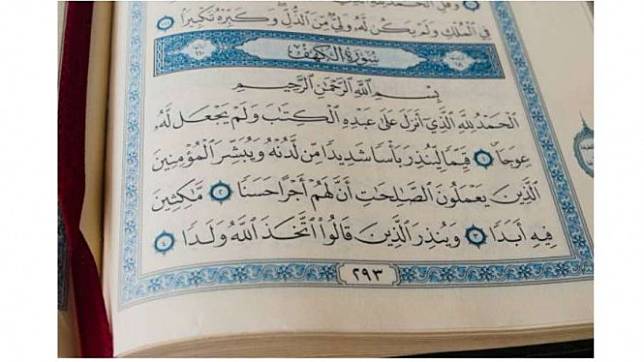 وَقُلِ الْحَمْدُ لِلَّهِ
فِي الْمُلْكِ وَلَمْ يَكُن لَّهُ وَلِيٌّ مِّنَ الذُّلِّ وَكَبِّرْهُ تَكْبِيرًا
سُورَةُ الْكَهْفِ
بِسْمِ اللَّهِ الرَّحْمَٰنِ الرَّحِيمِ
الْحَمْدُ لِلَّهِ الَّذِي أَنزَلَ عَلَىٰ عَبْدِهِ الْكِتَابَ وَلَمْ يَجْعَل لَّهُ
عِوَجَا ١ قَيِّمًا لِّيُنذِرَ بَأْسًا شَدِيدًا مِّن لَّدُنْهُ وَيُبَشِّرَ الْمُؤْمِنِينَ
الَّذِينَ يَعْمَلُونَ الصَّالِحَاتِ أَنَّ لَهُمْ أَجْرًا حَسَنًا ٢ مَّاكِثِينَ
فِيهِ أَبَدًا ٣ وَيُنذِرَ الَّذِينَ قَالُوا اتَّخَذَ اللَّهُ وَلَدًا ٤
٢٩٣